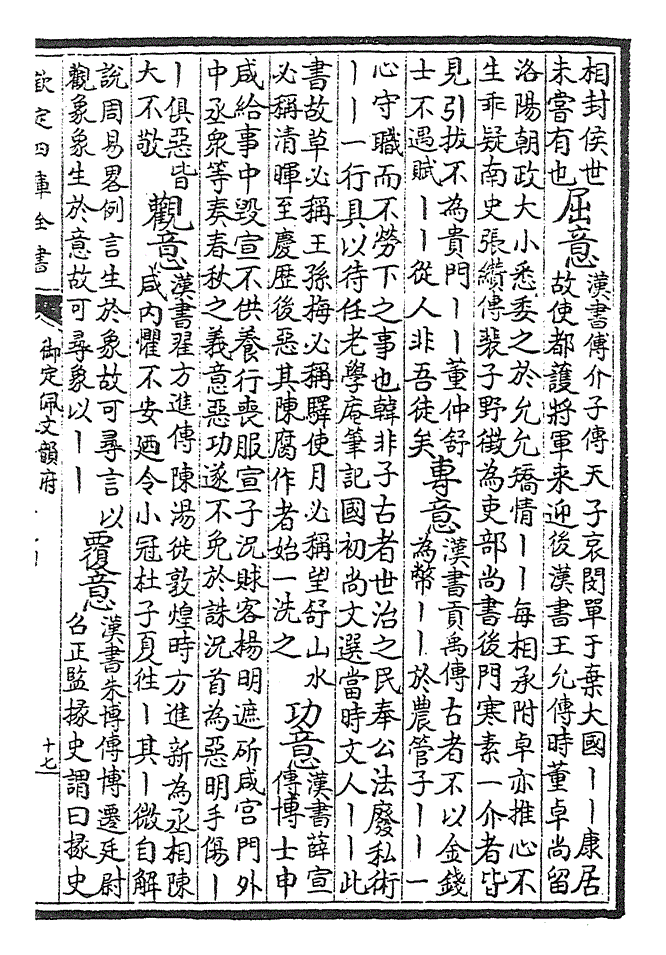 相封侯世
未嘗有也
屈意
漢書傅介子傳天子哀閔單于棄大國丨丨康居
故使都護將軍来迎後漢書王允傳時董卓尚留
洛陽朝政大小悉委之於允允矯情丨丨每相承附卓亦推心不
生乖疑南史張纘傳裴子野徵為吏部尚書後門寒素一介者皆
見引拔不為貴門丨丨董仲舒
士不遇賦丨丨從人非吾徒矣
專意
漢書貢禹傳古者不以金錢
為幣丨丨於農管子丨丨一
心守職而不勞下之事也韓非子古者世治之民奉公法廢私術
丨丨一行具以待任老學庵筆記國初尚文選當時文人丨丨此
書故草必稱王孫梅必稱驛使月必稱望舒山水
必稱清暉至慶歴後惡其陳腐作者始一洗之
功意
漢書薛宣
傳博士申
咸給事中毀宣不供養行喪服宣子况賕客楊明遮斫咸宫門外
中丞衆等奏春秋之義意惡功遂不免於誅况首為惡明手傷丨
丨俱惡皆
大不敬
觀意
漢書翟方進傳陳湯徙敦煌時方進新為丞相陳
咸内懼不安廼令小冠杜子夏往丨其丨微自解
說周易畧例言生於象故可尋言以
觀象象生於意故可尋象以丨丨
覆意
漢書朱博傳博遷廷尉
召正監掾史謂曰掾史
欽定四庫全書
御定佩文韻府
十七